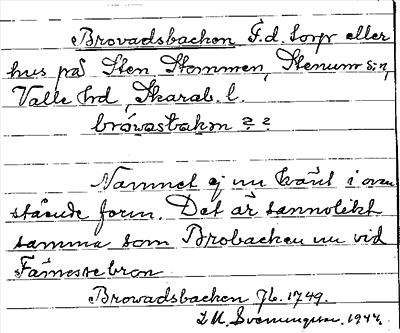 Brovadsbacken F.d. torp eller
hus på Sten Stommen, Stenum sn,
Valle hd, Skarab. l.
bròwasbakan ? ?
Namnet ej nu känt i ovan
stående form. Det är sannolikt
samma som Brobacken nu vid
Fämestebron
Browadsbacken Jb. 1749.
Svenungsson. 1944.